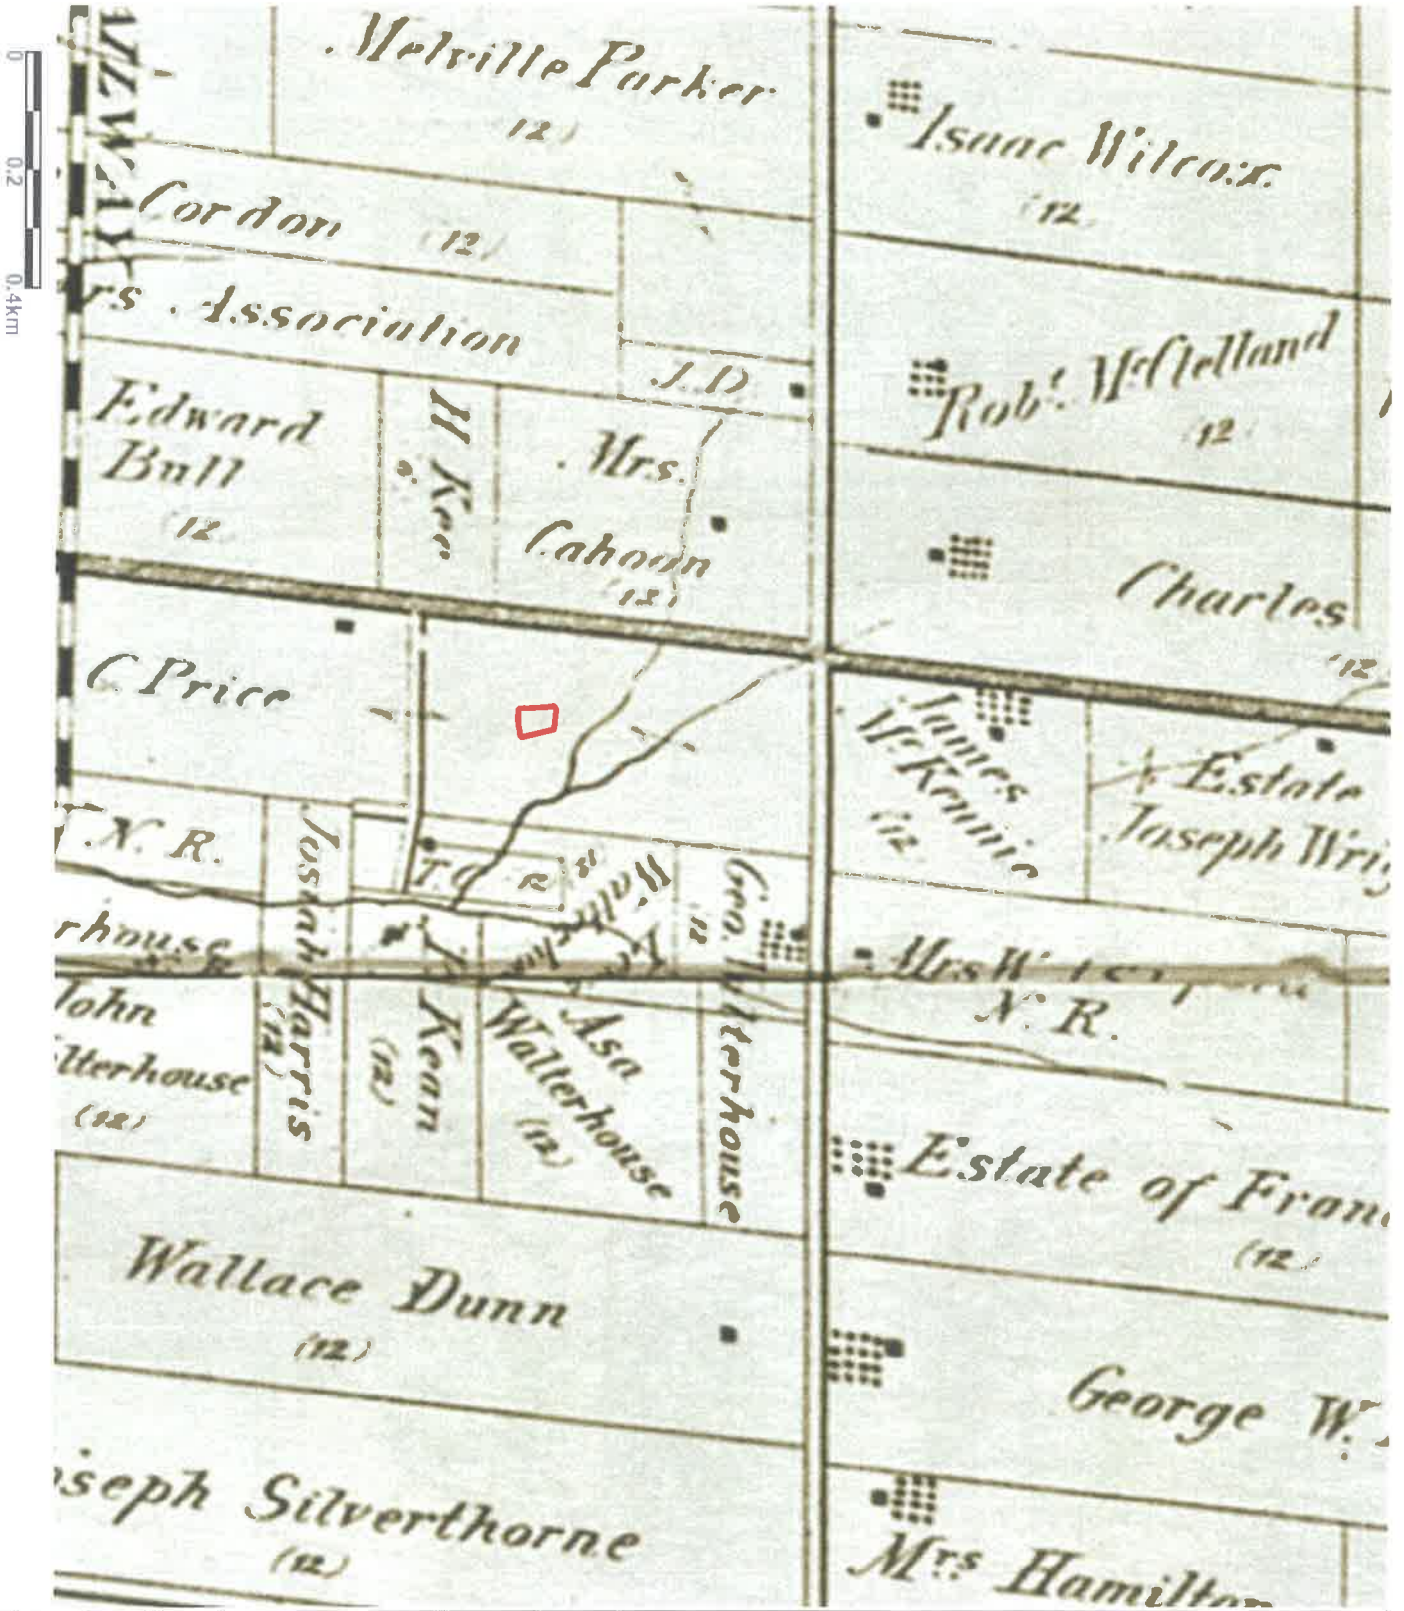 0 0.2 0.4km
Melville Parker
12
Isaac Wilcox
12
Cordon 12
rs. Association
J. D
Robt. McClelland
12
Edward
Bull
12
H Kee
Mrs.
Cahoon
12
Charles
12
C. Price
James
McKennie
12
Estate
Joseph Wrig
N. R.
Josiah Harris
(12)
R
Geo. Walterhouse
12
rhouse
Mrs W
N. R.
John
lterhouse
(12)
Kean
(12)
Asa
Walterhouse
(12)
Estate of Fran
(12)
Wallace Dunn
(12)
George W.
oseph Silverthorne
(12)
Mrs Hamilton